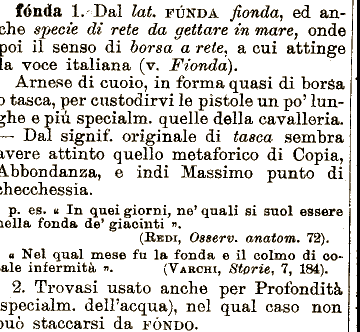 fónda 1. Dal lat. FÚNDA fionda, ed an-
che specie di rete da gettare in mare, onde
poi il senso di borsa a rete, a cui attinge
la voce italiana (v. Fionda).
Arnese di cuoio, in forma quasi di borsa
o tasca, per custodirvi le pistole un po' lun-
ghe e piú specialm. quelle della cavalleria.
— Dal signif. originale di tasca sembra
avere attinto quello metaforico di Copia,
Abbondanza, e indi Massimo punto di
checchessia.
p. es. « In quei giorni, ne' quali si suol essere
nella fonda de' giacinti ».
(REDI, Osserv. anatom. 72).
« Nel qual mese fu la fonda e il colmo di co-
tale infermità ». (VARCHI, Storie, 7, 184).
2. Trovasi usato anche per Profondità
(specialm. dell'acqua), nel qual caso non
può staccarsi da FÓNDO.